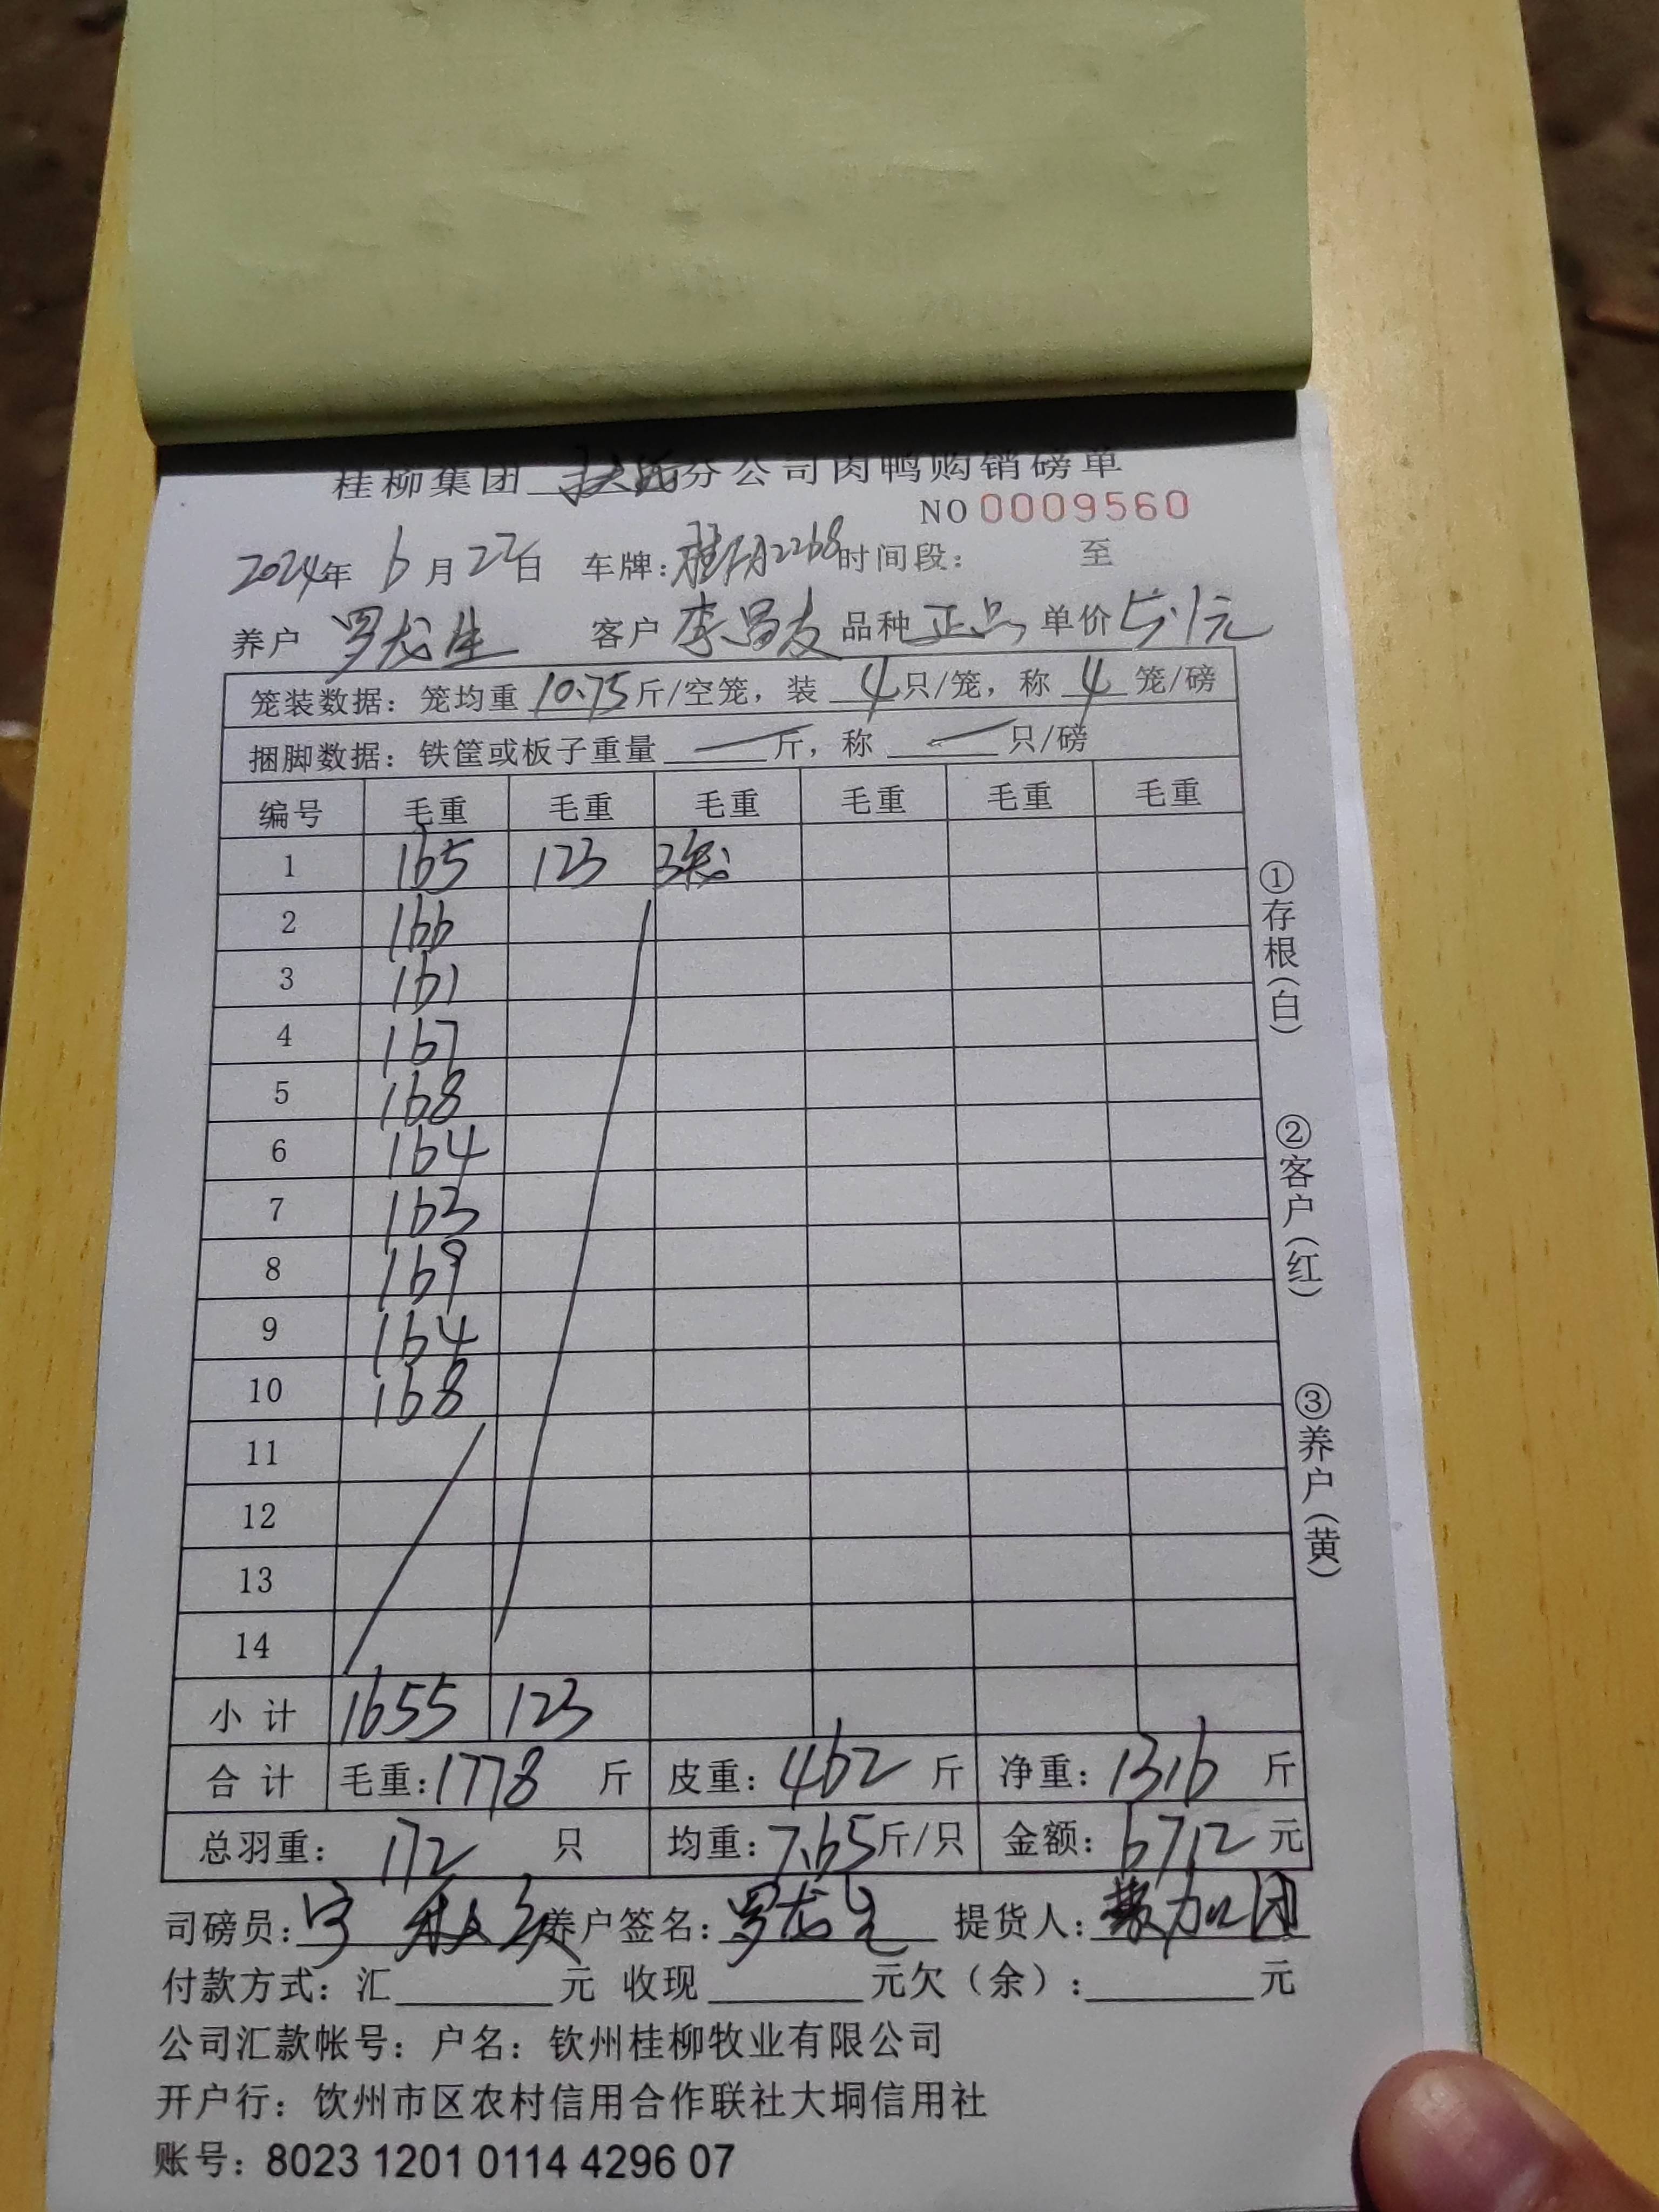 桂柳集团 扶绥分公司肉鸭购销磅单
NO 0009560
2024年 6月22日 车牌: 2268 时间段: 至
养户 罗龙生 客户 李昌友 品种 正品 单价 5.1元
笼装数据：笼均重 10.75 斤/空笼，装 4 只/笼，称 4 笼/磅
捆脚数据：铁筐或板子重量 — 斤，称 — 只/磅
编号 毛重 毛重 毛重 毛重 毛重 毛重
1 165 123 3笼
2 166
3 161
4 167
5 168
6 164
7 163
8 169
9 164
10 168
11
12
13
14
小计 1655 123
合计 毛重: 1778 斤 皮重: 462 斤 净重: 1316 斤
总羽重: 172 只 均重: 7.65 斤/只 金额: 6712 元
司磅员: 养户签名: 罗龙生 提货人:
付款方式：汇 元 收现 元欠（余）: 元
公司汇款帐号：户名：钦州桂柳牧业有限公司
开户行：饮州市区农村信用合作联社大垌信用社
账号：8023 1201 0114 4296 07
①存根（白）
②客户（红）
③养户（黄）